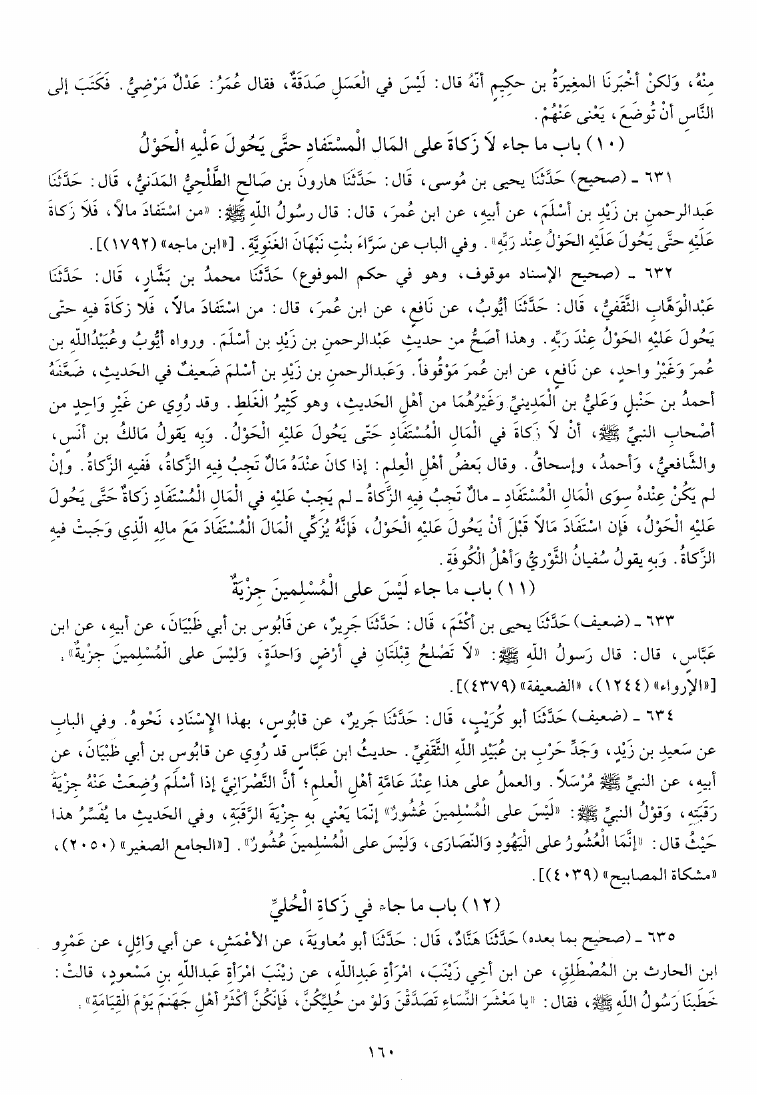 مِنْهُ، وَلكنْ أخْبَرنَا المغِيرَةُ بن حكِيمٍ أنّهُ قال: لَيْسَ في الْعَسَلِ صَدَقَةٌ، فقال عُمَرُ: عَدْلٌ مَرْضِيٌّ. فَكَتَبَ إلى
النَّاسِ أنْ تُوضَعَ، يَعْنى عَنْهُمْ.
(١٠) باب ما جاء لاَ زكاةَ على المَالِ الْمسْتَفادِ حتَّى يَحُولَ عَلَيْهِ الْحَوْلُ
٦٣١ ـ (صحيح) حَدَّثَنَا يحيى بن مُوسى، قَال: حَدَّثَنَا هارونَ بن صَالحٍ الطَّلْحِيُّ المَدَنيُّ، قَال: حَدَّثَنَا
عَبدالرحمنِ بن زَيْدِ بن أسْلَمَ، عن أبيهِ، عن ابن عُمرَ، قال: قال رسُولُ اللّهِ ﷺ: «من اسْتفَادَ مالاً، فَلَا زكاةَ
عَلَيْهِ حتَّى يَحُولَ عَلَيْهِ الحَوْلُ عِنْد رَبِّه». وفي الباب عن سَرَّاءَ بنْتِ نَبْهَانَ الغَنَوِيَّةِ. [«ابن ماجه» (١٧٩٢)].
٦٣٢ ـ (صحيح الإسناد موقوف، وهو في حكم الموفوع) حَدَّثَنَا محمدُ بن بَشَّارٍ، قَال: حَدَّثَنَا
عَبْدُالْوَهَّابِ الثَّقَفيُّ، قَال: حَدَّثَنَا أيُّوبُ، عن نَافعٍ، عن ابن عُمرَ، قال: من اسْتَفَادَ مالاً، فَلا زكَاةَ فيه حتّى
يَحُولَ عَلَيْهِ الحَوْلُ عِنْدَ رَبِّهِ. وهذا أصَحُّ من حديثِ عَبْدالرحمنِ بن زَيْدِ بن أسْلَمَ. ورواه أيُّوبُ وعُبَيْدُاللّهِ بن
عُمرَ وَغَيْرُ واحدٍ، عن نَافعٍ، عن ابن عمرَ مَوْقُوفاً. وَعَبدالرحمنِ بن زَيْدِ بن أسْلمَ ضَعيفٌ في الحَديثِ، ضَعَّفَهُ
أحمدُ بن حَنْبَلٍ وَعَليُّ بن الْمَدِينيِّ وَغَيْرُهُمَا من أهْلِ الحَديثِ، وهو كَثِيرُ الْغَلَطِ. وقد رُوِي عن غَيْرِ وَاحِدٍ من
أصْحابِ النبيِّ ﷺ، أنْ لاَ زكاةَ في المَالِ الْمُسْتَفَادِ حَتّى يَحُولَ عَلَيْهِ الْحَوْلُ. وَبِه يَقولُ مَالكُ بن أنَسٍ،
والشَّافعيُّ، وَأحمدُ، وإسحاقُ. وقال بَعضُ أهْلِ العِلمِ: إذا كانَ عنْدَهُ مَالٌ تَجبُ فِيهِ الزَّكاةُ، ففيهِ الزَّكاةُ. وإنْ
لم يَكُنْ عِنْدهُ سِوَى الْمَالِ الْمُسْتَفَادِ ـ مالٌ تَجبُ فيهِ الزَّكاةُ ـ لم يَجِبْ عَلَيْهِ في الْمَالِ الْمُسْتَفادِ زكاةٌ حَتَّى يَحُولَ
عَلَيْهِ الْحَوْلُ، فَإن اسْتَفادَ مَالاً قَبْلَ أنْ يَحُولَ عَلَيْهِ الْحَوْلُ، فَإنَّهُ يُزَكِّي الْمَالَ الْمُسْتَفَادَ مَعَ مالِهِ الّذِي وَجَبَتْ فيهِ
الزَّكاةُ. وَبِه يقولُ سُفيانُ الثَّوْرِيُّ وَأهْلُ الْكُوفَةِ.
(١١) باب ما جاء لَيْسَ على الْمُسْلِمينَ جِزْيَةٌ
٦٣٣ ـ (ضعيف) حَدَّثَنَا يحيى بن أكْثَمَ، قَال: حَدَّثَنَا جَريرٌ، عن قَابُوسِ بن أبي ظَبْيَانَ، عن أبيهِ، عن ابن
عَبَّاسٍ، قال: قال رَسولُ اللّهِ ﷺ: «لاَ تَصْلحُ قِبْلَتَانِ في أرْضٍ وَاحدَةٍ، وَليْسَ على الْمُسْلِمينَ جزْيةٌ».
[«الإرواء» (١٢٤٤)، «الضعيفة» (٤٣٧٩)].
٦٣٤ ـ (ضعيف) حَدَّثَنَا أبو كُرَيْبٍ، قَال: حَدَّثَنَا جَريرٌ، عن قابُوسَ، بهذا الإسْنَادِ، نَحْوهُ. وفي البابِ
عن سَعيدِ بن زَيْدٍ، وَجَدِّ حَرْبِ بن عُبَيْدِ اللّهِ الثَّقَفيِّ. حديثُ ابن عَبَّاسٍ قد رُوِي عن قابُوسِ بن أبي ظَبْيَانَ، عن
أبيهِ، عن النبيِّ ﷺ مُرْسَلاً. والعملُ على هذا عِنْدَ عَامَّةِ أهْلِ العلمِ؛ أنَّ النَّصْرَانِيَّ إذا أسْلَمَ وُضِعَتْ عَنْهُ جِزْيَةُ
رَقَبَتِهِ، وَقَوْلُ النبيِّ ﷺ: «لَيْسَ على الْمُسْلِمينَ عُشُورٌ» إنَّمَا يَعْني به جِزْيَةَ الرَّقَبَةِ، وفي الحَديثِ ما يُفَسِّرُ هذا
حَيْثُ قال: «إنَّمَا الْعُشُورُ على الْيَهُودِ وَالنَّصَارَى، وَلَيْسَ على الْمُسْلِمينَ عُشُورٌ». [«الجامع الصغير» (٢٠٥٠)،
«مشكاة المصابيح» (٤٠٣٩)].
(١٢) باب ما جاء في زَكاةِ الْحُليِّ
٦٣٥ ـ (صحيح بما بعده) حَدَّثَنَا هَنَّادٌ، قَال: حَدَّثَنَا أبو مُعاويَةَ، عن الأعْمَشِ، عن أبي وَائِلٍ، عن عَمْرِو
ابن الحارث بن المُصْطَلِقِ، عن ابن أخِي زَيْنَبَ، امْرَأةِ عَبداللّهِ، عن زيْنَبَ امْرَأةِ عَبداللّهِ بن مَسْعودٍ، قالتْ:
خَطَبنَا رَسُولُ اللّهِ ﷺ، فقال: «يا مَعْشَرَ النِّسَاءِ تَصَدَّقْنَ وَلوْ من حُليِّكُنَّ، فَإنّكُنَّ أكْثَرُ أهْلِ جَهَنمَ يَوْمَ الْقِيَامَةِ».
١٦٠